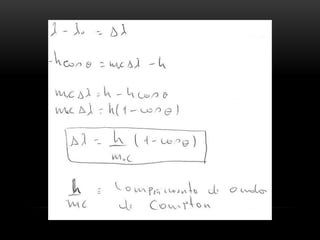 λ - λ₀ = Δλ
-hcosθ = mcΔλ - h
mcΔλ = h - hcosθ
mcΔλ = h(1 - cosθ)
Δλ = h/m₀c (1 - cosθ)
h/mc = Comprimento de onda
de Compton